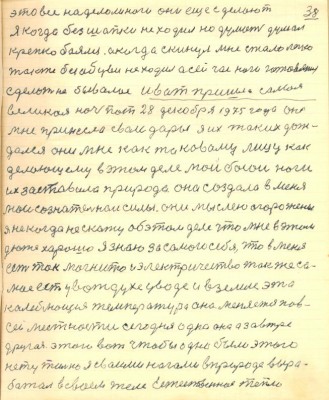 38
это все на деломного они еще сделают
я когда без шапки не ходил но думать думал
крепко боялся, а когда скинул мне стало легко
также бы обуви не ходил а сей час ноги готовы
сделать не бывалае и вот пришла самая
великая ночь тот 28 декабря 1975 года она
мне принесла сваи дары я их таких дож-
дался они мне как таковому лицу как
делающему в этом деле мои босои ноги
их заставила природа она создала в меня
мои сознательнаи силы, они мыслею огорожены
я не когда не скажу об этом деле что мне в этом
деже харошо я знаю за самого себя, что в меня
есть так магнито и электричество также са-
мае есть у воздухе у воде и в земле эта
калеблющия температура она меняется пов-
сей местности сегодня одна она а завтре
другая. этого вот чтобы одно было этого
нету только я своими ногами в природе выра-
батал в своем теле Естественное тепло